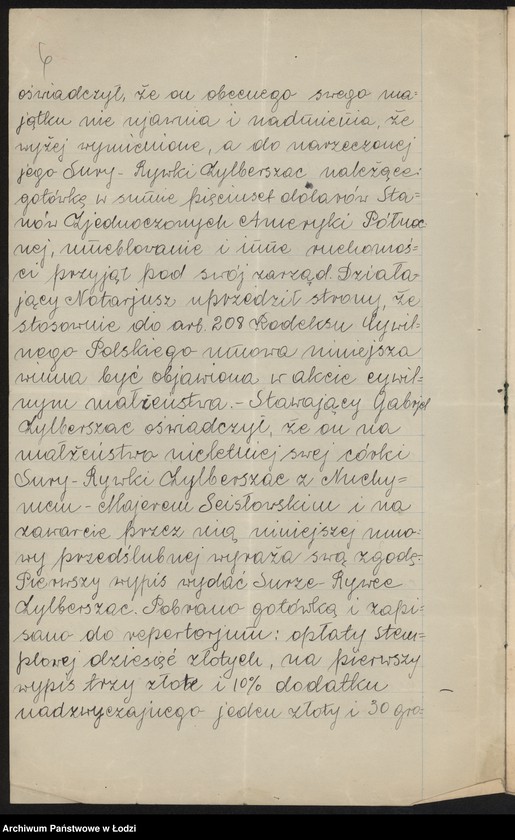 6
oświadczył, że on obecnego swego ma-
jątku nie ujawnia i nadmienia, że
wyżej wymienione, a do narzeczonej
jego Sury-Rywki Zylberszac należące:
gotówkę w sumie pięciuset dolarów Sta-
nów Zjednoczonych Ameryki Północ
nej, umeblowanie i inne ruchomoś-
ci przyjął pod swój zarząd. Działa-
jący Notarjusz uprzedził strony, że
stosownie do art. 208 Kodeksu Cywil-
nego Polskiego umowa niniejsza
winna być objawiona w akcie cywil-
nym małżeństwa.- Stawający Gabryel
Zylberszac oświadczył, że on na
małżeństwo nieletniej swej córki
Sury-Rywki Zylberszac z Nuchy-
mem-Majerem Seisłowskim i na
zawarcie przez nią niniejszej umo-
wy przedślubnej wyraża swą zgodę.-
Pierwszy wypis wydać Surze-Rywce
Zylberszac. Pobrano gotówką i zapi-
sano do repertorjum: opłaty stem-
plowej dziesięć złotych, na pierwszy
wypis trzy złote i 10% dodatku
nadzwyczajnego jeden złoty i 30 gro-
Archiwum Państwowe w Łodzi